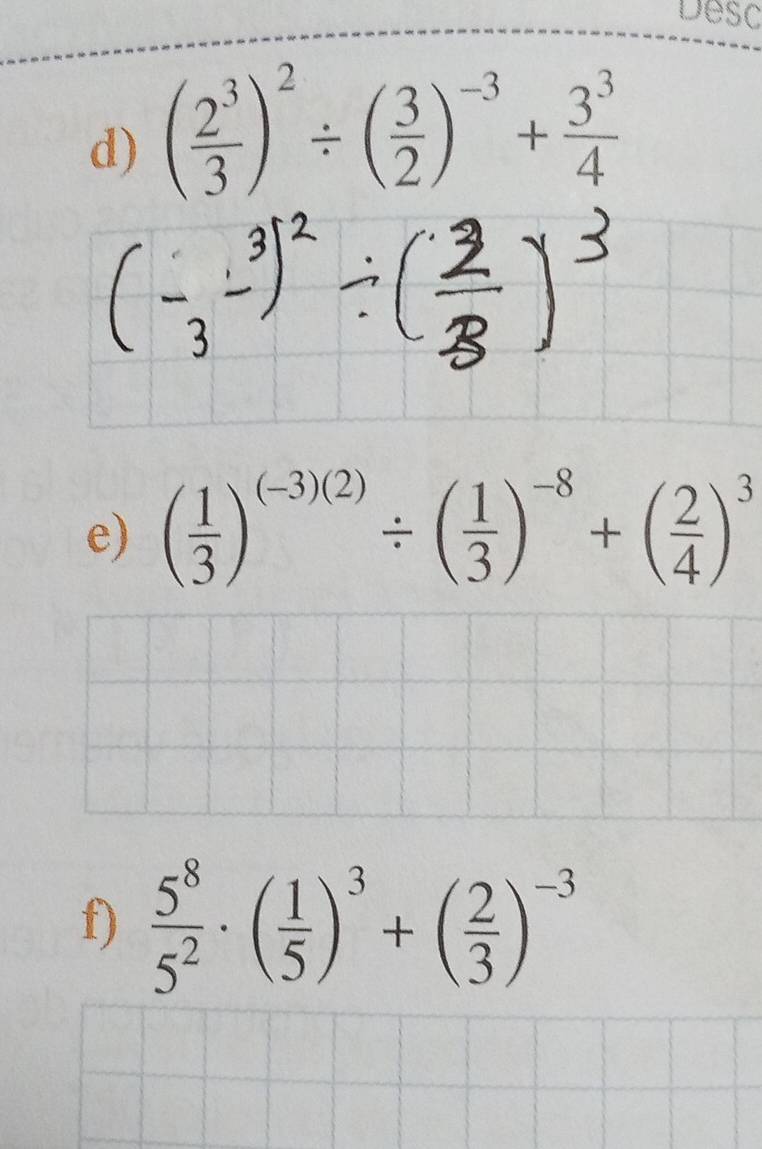 Desc
d) (2³/3)² ÷ (3/2)⁻³ + 3³/4
( - 3 - ³)² ÷ ( / )³
e) (1/3)⁽⁻³⁾⁽²⁾ ÷ (1/3)⁻⁸ + (2/4)³
f) 5⁸/5² · (1/5)³ + (2/3)⁻³